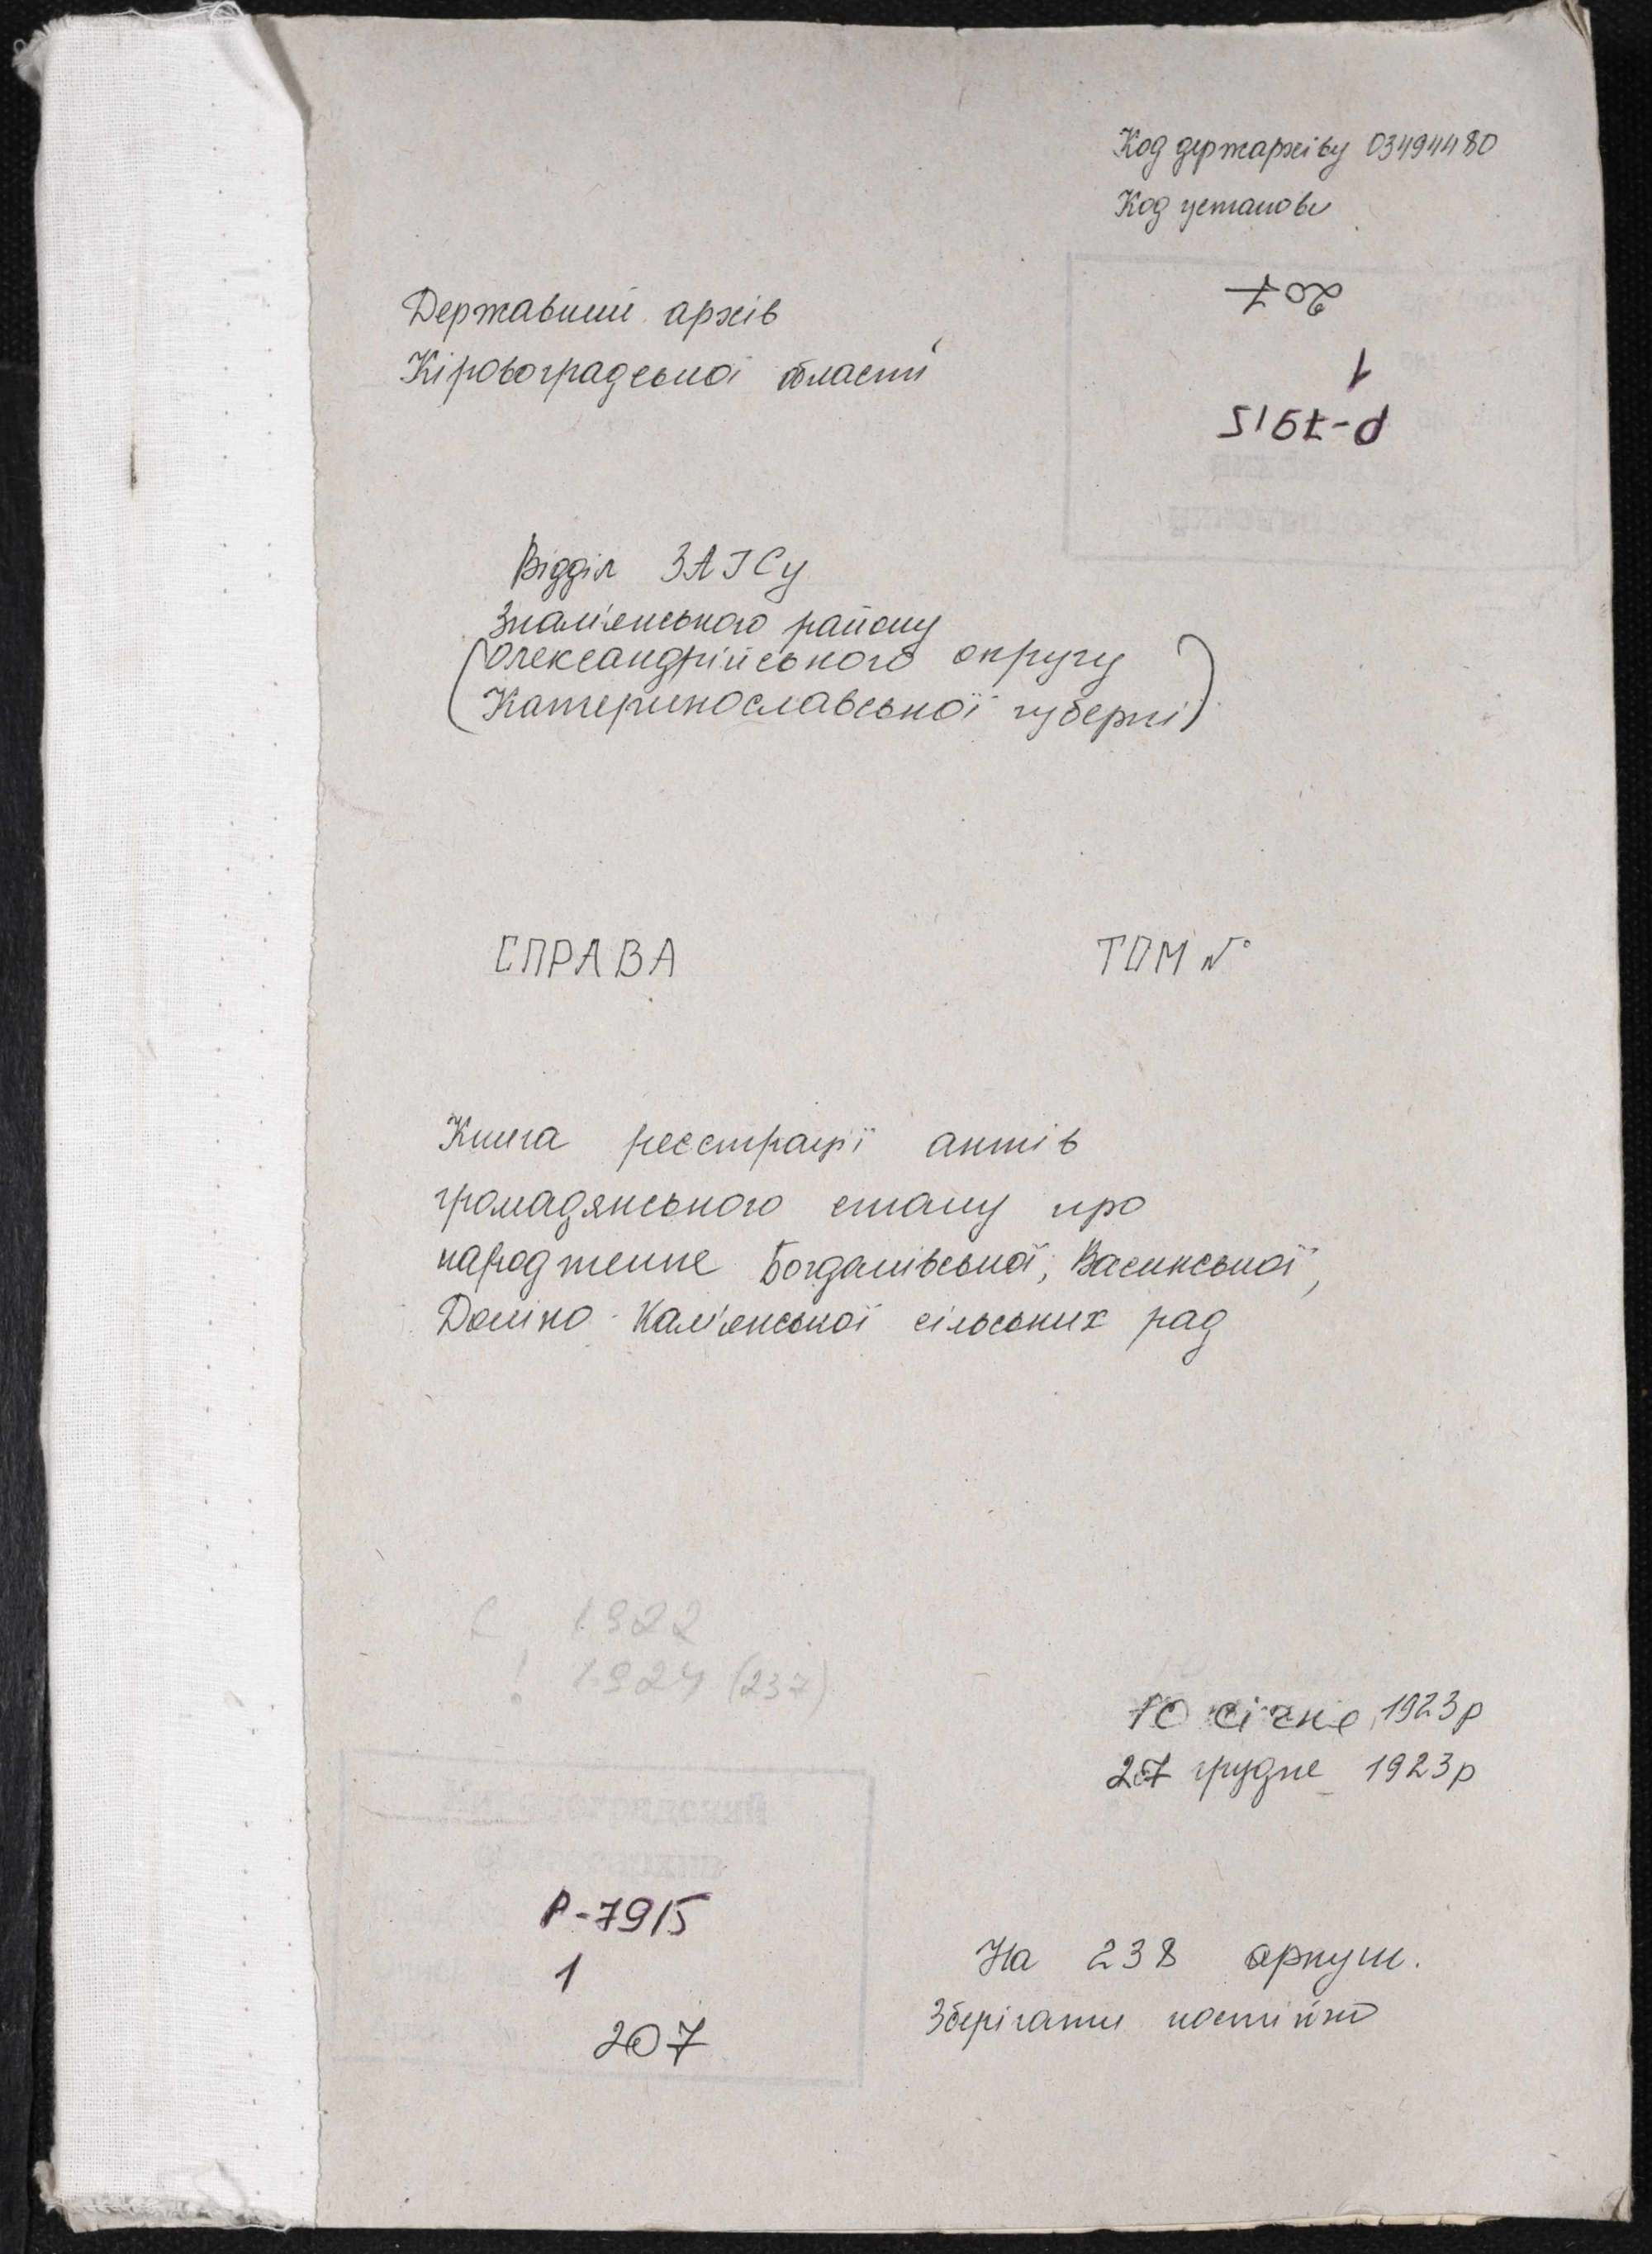 Код держархіву 03494480
Код установи
207
1
Р-7915
Державний архів
Кіровоградської області
Відділ ЗАГСу
Знам'янського району
(Олександрійського округу
Катеринославської губерні)
СПРАВА ТОМ №
Книга реєстрації актів
громадянського стану про
народження Богданівської, Васинської,
Доліно-Кам'янської сільських рад
1922
! 1924 (237)
10 січня 1923р
27 грудня 1923р
Р-7915
1
207
На 238 аркуш.
Зберігати постійно